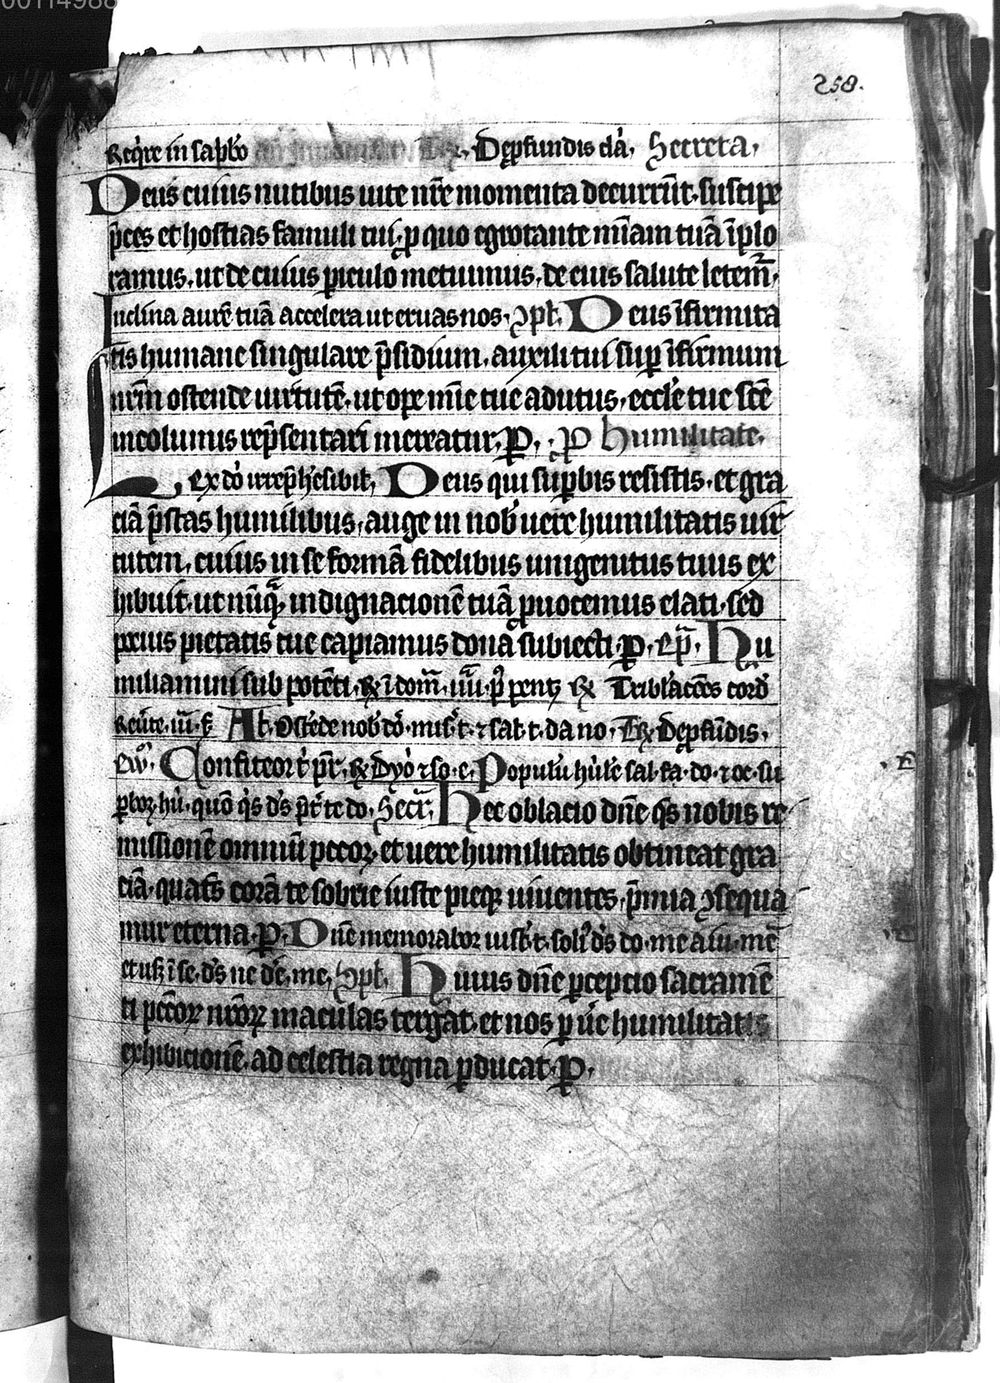 00114988
258.
Reqͥre in saꝑbō Depfundis cla, Secreta,
Deus cuius nutibus uite nr̄e momenta decurrūt. suscipe
p̄ces et hostias famuli tui, ꝑ quo egrotante miām tuā īplo
ramus. ut de cuius ꝑiculo metuimus. de eius salute letem̄.
Inclina aurē tuā accelera ut eruas nos. ꝯpl. Deus īfirmita
tis humane singulare p̄sidium. auxilii tui suꝑ īfirmum
nr̄m ostende uirtutē. ut ope mīe tue adiutus. eccl'e tue scē
incolumis rep̄sentari mereatur. ꝑ. ꝓ humilitate.
Lex dō irrep̄hēsibil', Deus qui suꝑbis resistis. et gra
ciā p̄stas humilibus, auge in nob' uere humilitatis uir
tutem, cuius in se formā fidelibus unigenitus tuus ex
hibuit. ut nūq̄ indignacionē tuā ꝓuocemus elati. sed
pocius pietatis tue capiamus dona subiecti ꝑ. ep̄. Hu
miliamini sub potēti. ꝶ Tribl'acōes cord'
Al. Ostēde nob' dō. mis't. ⁊ sal. t. da no, Tꝶ Depfūdis.
Confiteor t' pr̄. Populū hūil'e sal. fa. do. ⁊ oc. su
Secr̄. Hec oblacio dn̄e qs nobis re
missionē omniū pccoꝝ. et uere humilitatis obtineat gra
ciā. quatꝰ corā te sobrie iuste pieqꝫ uiuentes, p̄mia ꝯsequa
mur eterna. ꝑ. Dn̄e memorabor iust't. soliꝰ d's do. me a iu. mē
et usꝫ ī se. d's ne de. me, ꝯpl. Huius dn̄e ꝑcepcio sacramē
ti pccōꝝ nr̄oꝝ maculas tergat. et nos ꝑ u'e humilitatis
exhibicionē. ad celestia regna ꝑducat. ꝑ.